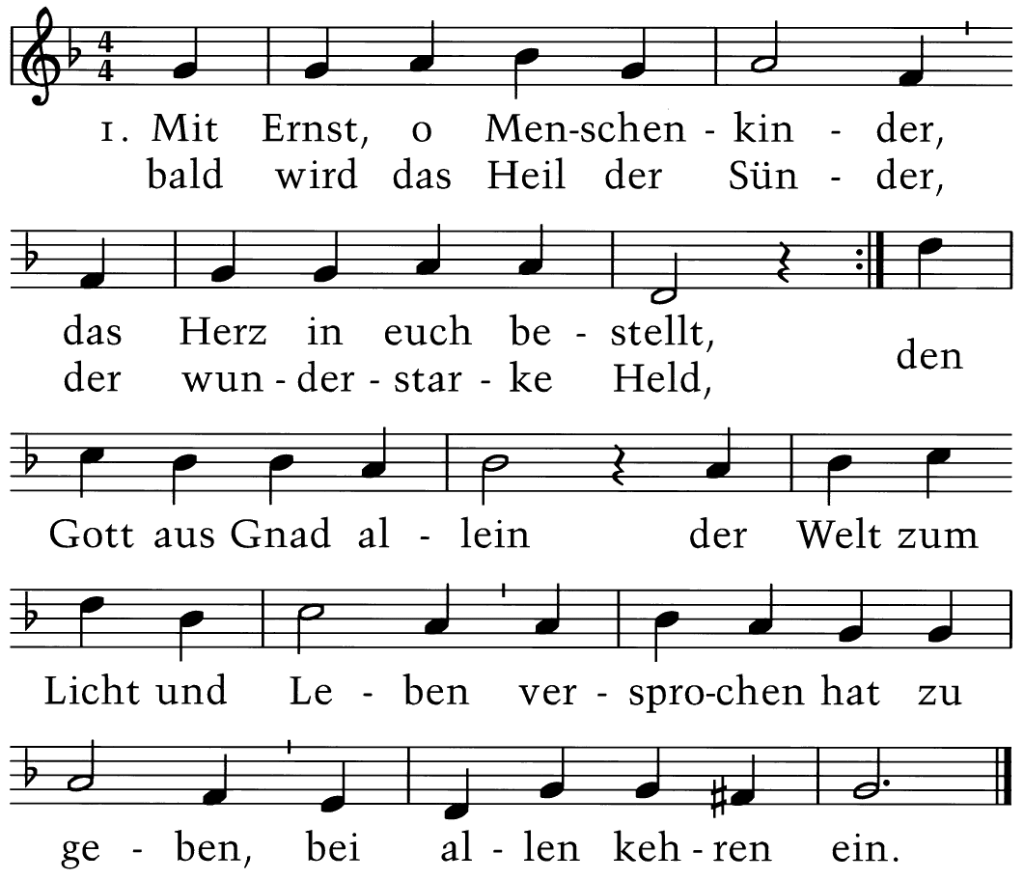 4
4
1. Mit Ernst, o Men-schen - kin - der,
bald wird das Heil der Sün - der,
das Herz in euch be - stellt,
der wun - der - star - ke Held,
den
Gott aus Gnad al - lein der Welt zum
Licht und Le - ben ver - spro-chen hat zu
ge - ben, bei al - len keh - ren ein.